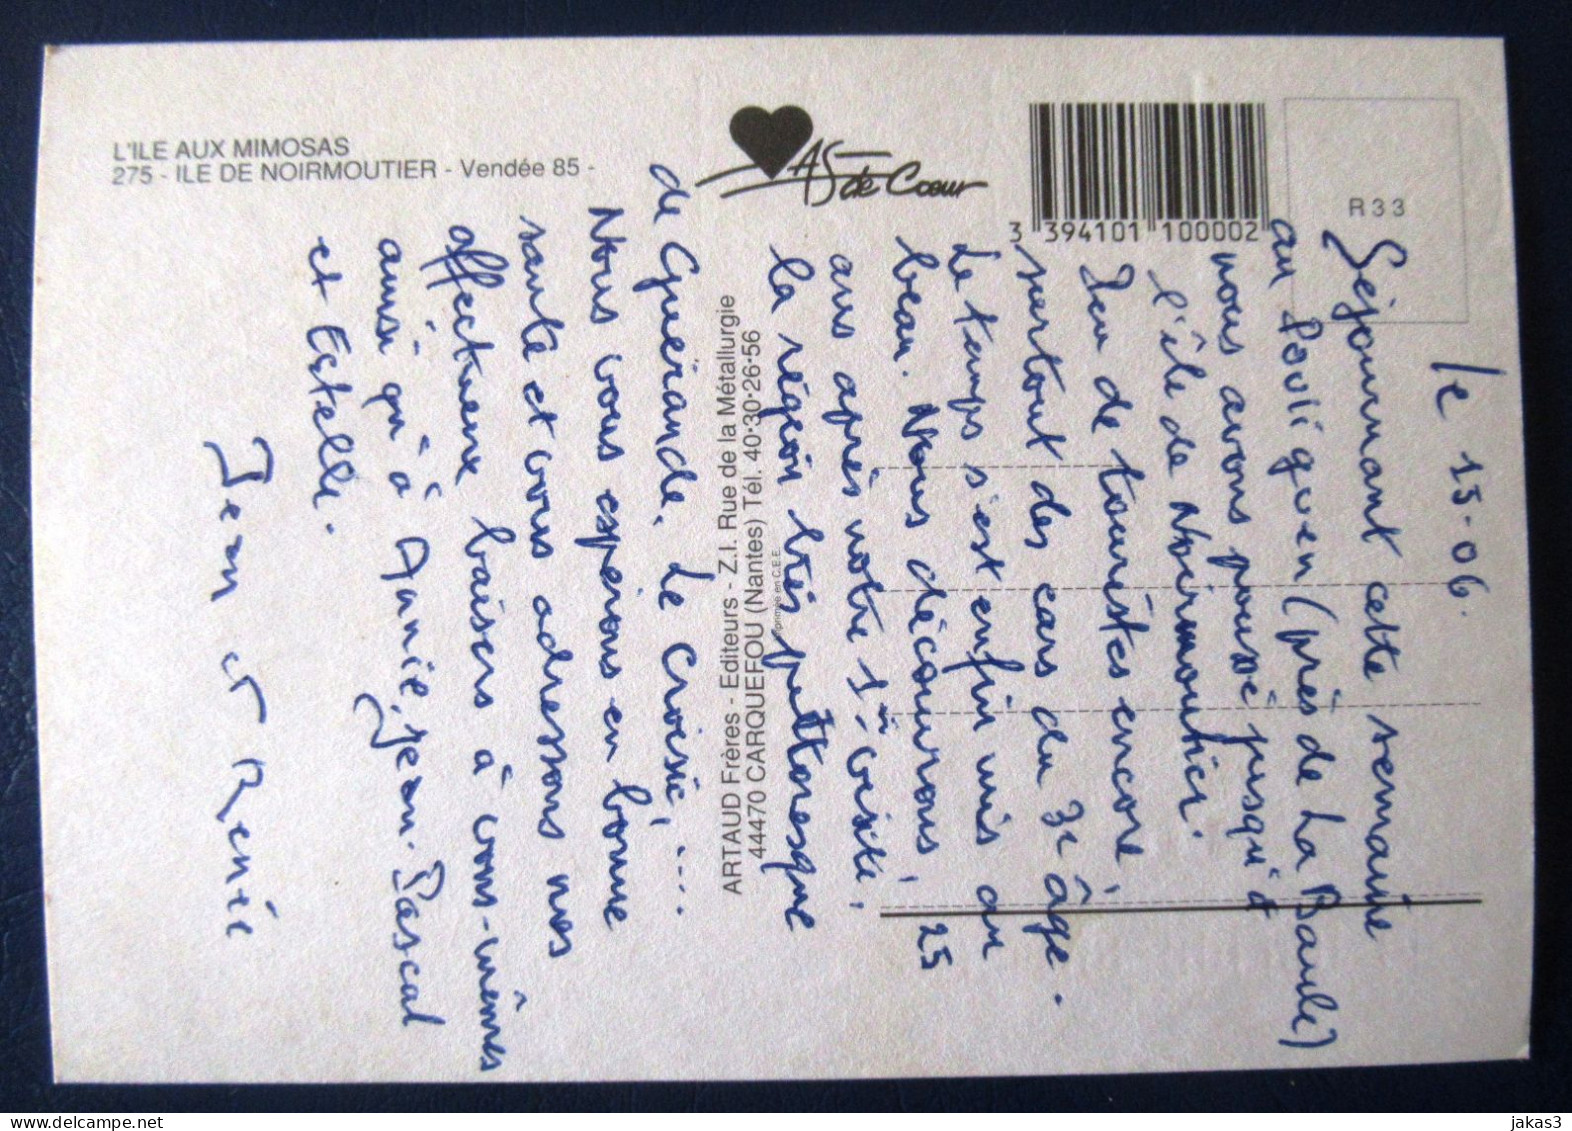 L'ILE AUX MIMOSAS
275 - ILE DE NOIRMOUTIER - Vendée 85 -
AS de Cœur
3 394101 100002
R33
ARTAUD Frères - Editeurs - Z.I. Rue de la Métallurgie
44470 CARQUEFOU (Nantes) Tél. 40·30·26·56
Imprimée en C.E.E.
le 15-06.
Séjournant cette semaine
au Pouliguen (près de La Baule)
nous avons poussé jusqu'à
l'île de Noirmoutier.
Peu de touristes encore,
surtout des cars du 3e âge.
Le temps s'est enfin mis au
beau. Nous découvrons, 25
ans après notre 1ère visite,
la région très pittoresque
de Guérande, Le Croisic,...
Nous vous espérons en bonne
santé et vous adressons nos
affectueux baisers à vous-mêmes
ainsi qu'à Annie, Jean-Pascal
et Estelle.
Jean et Renée
jakas3